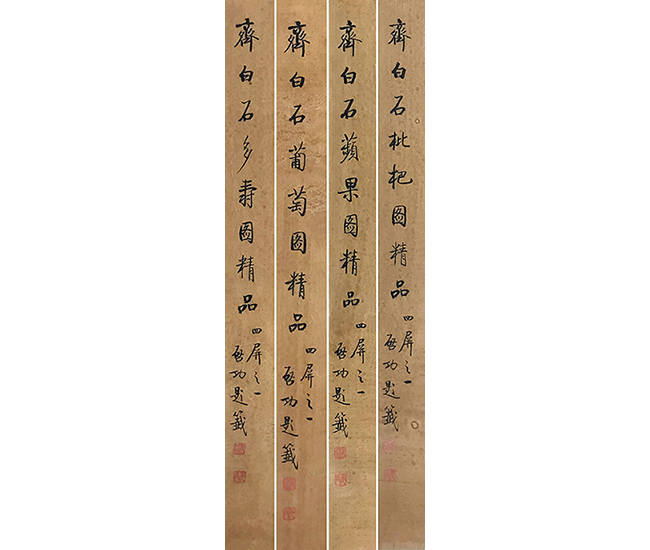 齊白石枇杷圖精品
四屏之一
啓功題籤
齊白石蘋果圖精品
四屏之一
啓功題籤
齊白石葡萄圖精品
四屏之一
啓功題籤
齊白石多壽圖精品
四屏之一
啓功題籤